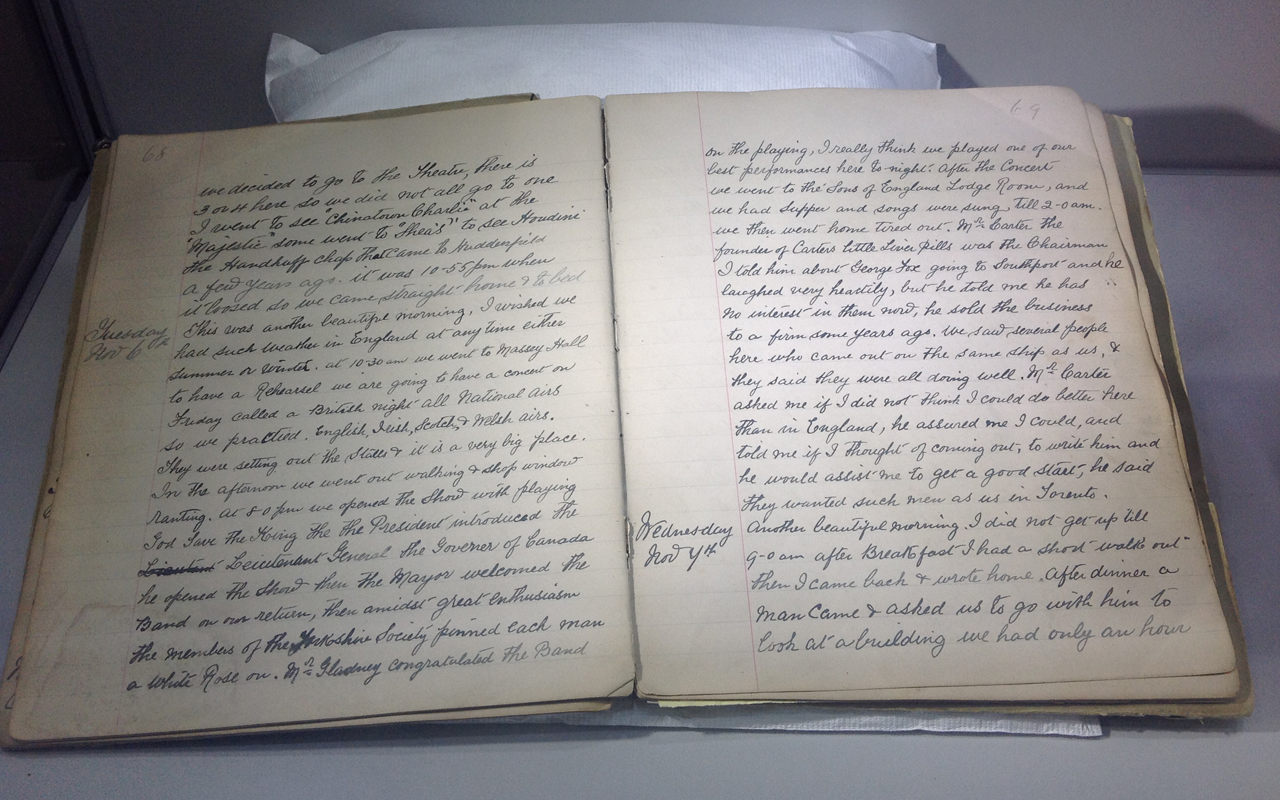 68
we decided to go to the Theatre, there is
3 or 4 here so we did not all go to one
I went to see "Chinatown Charlie" at the
"Majestic" some went to "Shea's" to see Houdini
the Handkuff chap that came to Huddersfield
a few years ago. it was 10-55 pm when
it loosed so we came straight home & to bed
Tuesday
Nov 6th
This was another beautiful morning, I wished we
had such weather in England at any time either
summer or winter. at 10-30 am we went to Massey Hall
to have a Rehearsel we are going to have a concert on
Friday called a British night all National airs
so we practied. English, Irish, Scotch, & Welsh airs.
They were setting out the Stalls & it is a very big place.
In the afternoon we went out walking & shop window
Ranting. at 8-0 pm we opened the Show with playing
God Save the King the the President introduced the
Leieutenant General the Govener of Canada
he opened the Show then the Mayor welcomed the
Band on our return, then amidst great enthusiasm
the members of the Yorkshire Society pinned each man
a White Rose on. Mr Gladney congratulated the Band
69
on the playing, I really think we played one of our
best performances here to-night. After the Concert
we went to the Sons of England Lodge Room, and
we had Supper and songs were sung till 2-0 am.
we then went home tired out. Mr Carter the
founder of Carters Little Liver Pills was the Chairman
I told him about George Fox going to Southport and he
laughed very heartily, but he told me he has
no interest in them now, he sold the business
to a firm some years ago. We saw several people
here who came out on the same ship as us, &
they said they were all doing well. Mr Carter
asked me if I did not think I could do better here
than in England, he assured me I could, and
told me if I thought of coming out, to write him and
he would assist me to get a good start, he said
they wanted such men as us in Toronto.
Wednesday
Nov 7th
Another beautiful morning. I did not get up till
9-0 am after Breakfast I had a short "walk out"
then I came back & wrote home. After dinner a
man came & asked us to go with him to
look at a building we had only an hour